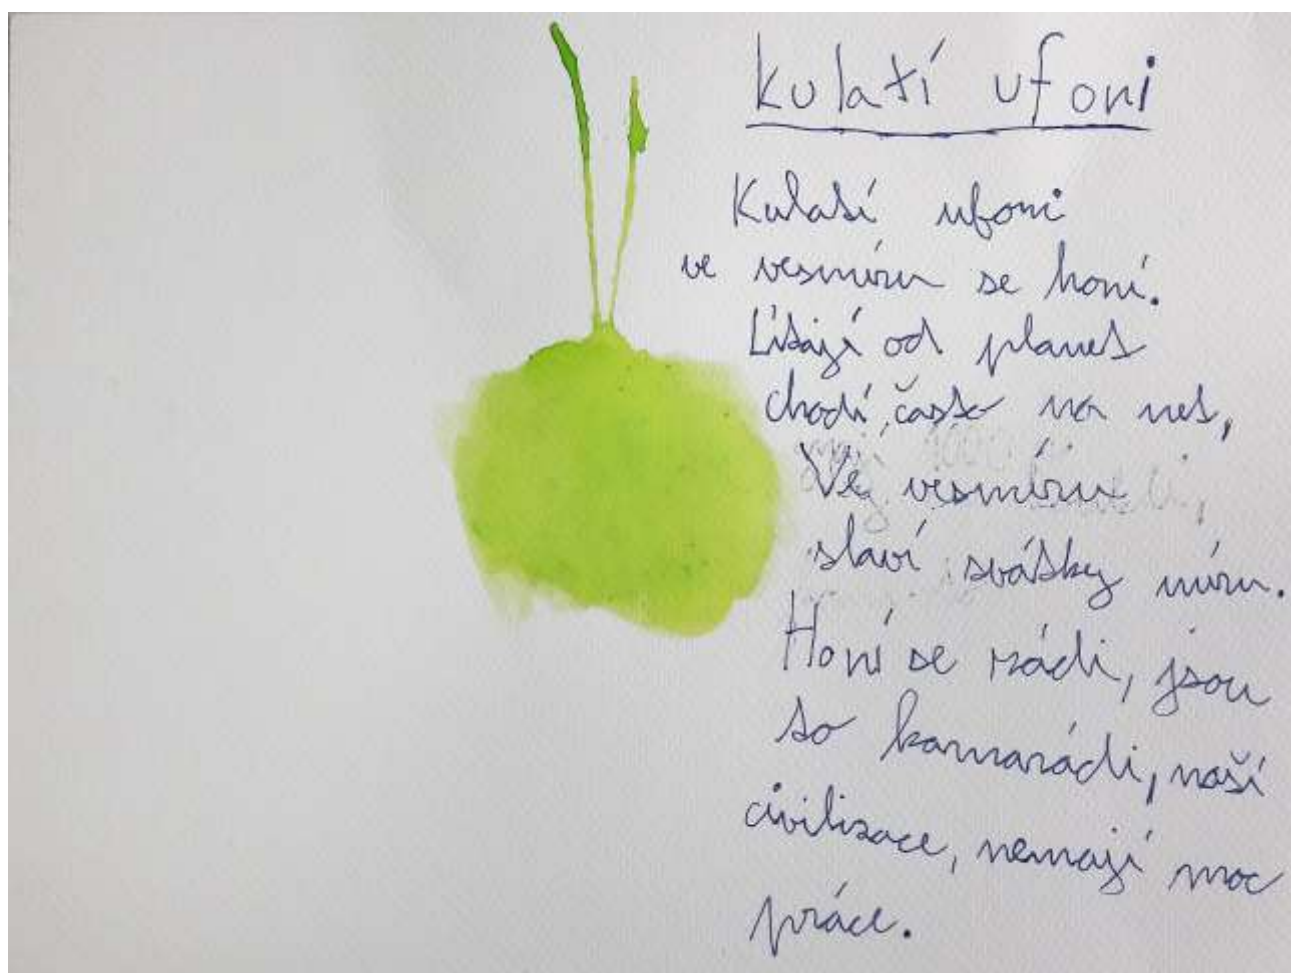 kulatí ufoni
Kulatí ufoni
ve vesmíru se honí.
Lítají od planet
chodí často na net,
Ve vesmíru
slaví svátky míru.
Honí se rádi, jsou
to kamarádi, naší
civilizace, nemají moc
práce.